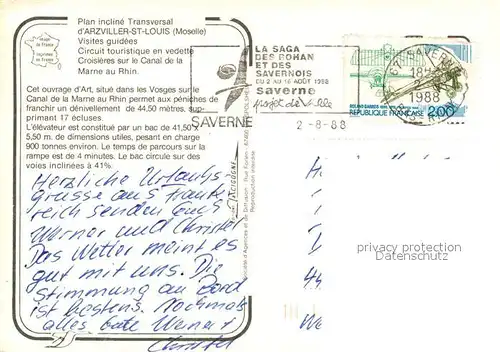 Plan incliné Transversal
d'ARZVILLER-ST-LOUIS (Moselle)
Visites guidées
Circuit touristique en vedette
Croisières sur le Canal de la
Marne au Rhin.
Cet ouvrage d'Art, situé dans les Vosges sur le
Canal de la Marne au Rhin permet aux péniches de
franchir un dénivellement de 44,50 mètres, sup-
primant 17 écluses.
L'élévateur est constitué par un bac de 41,50 x
5,50 m. de dimensions utiles, pesant en charge
900 tonnes environ. Le temps de parcours sur la
rampe est de 4 minutes. Le bac circule sur des
voies inclinées à 41%.
Herzliche Urlaubs-
grüsse aus Frank
reich senden Euch
Werner und Christel
Das Wetter meint es
gut mit uns. Die
Stimmung an Bord
ist bestens. Nochmals
alles Gute Werner +
Christel
Image
de France
Imprimé
en France
SAVERNE
LA SAGA
DES ROHAN
ET DES
SAVERNOIS
DU 2 AU 16 AOUT 1988
Saverne
projet de ville
67 SAVERNE
18H
1988
2-8-88
REPUBLIQUE FRANÇAISE 2,00
Reproduction interdite
H
4
We
privacy protection